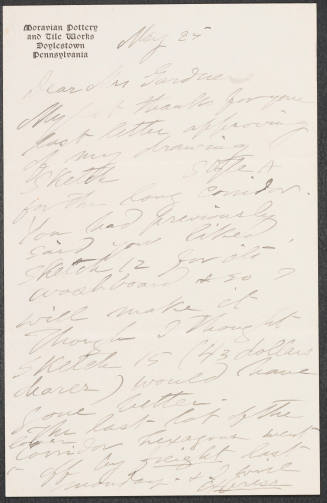 Moravian Pottery
and Tile Works
Doylestown
Pennsylvania
May 25
Dear Mrs Gardner
My thanks for your
last letter approving
of my drawing
Sketch
for the long corridor.
You had previously
said you liked
sketch 12 for its
washboard & so I
will make it
Though I thought
sketch 15 (43 dollars
dearer) would have
gone better.
The last lot of the
corridor hexagons went
off by freight last
Monday - & I will
express